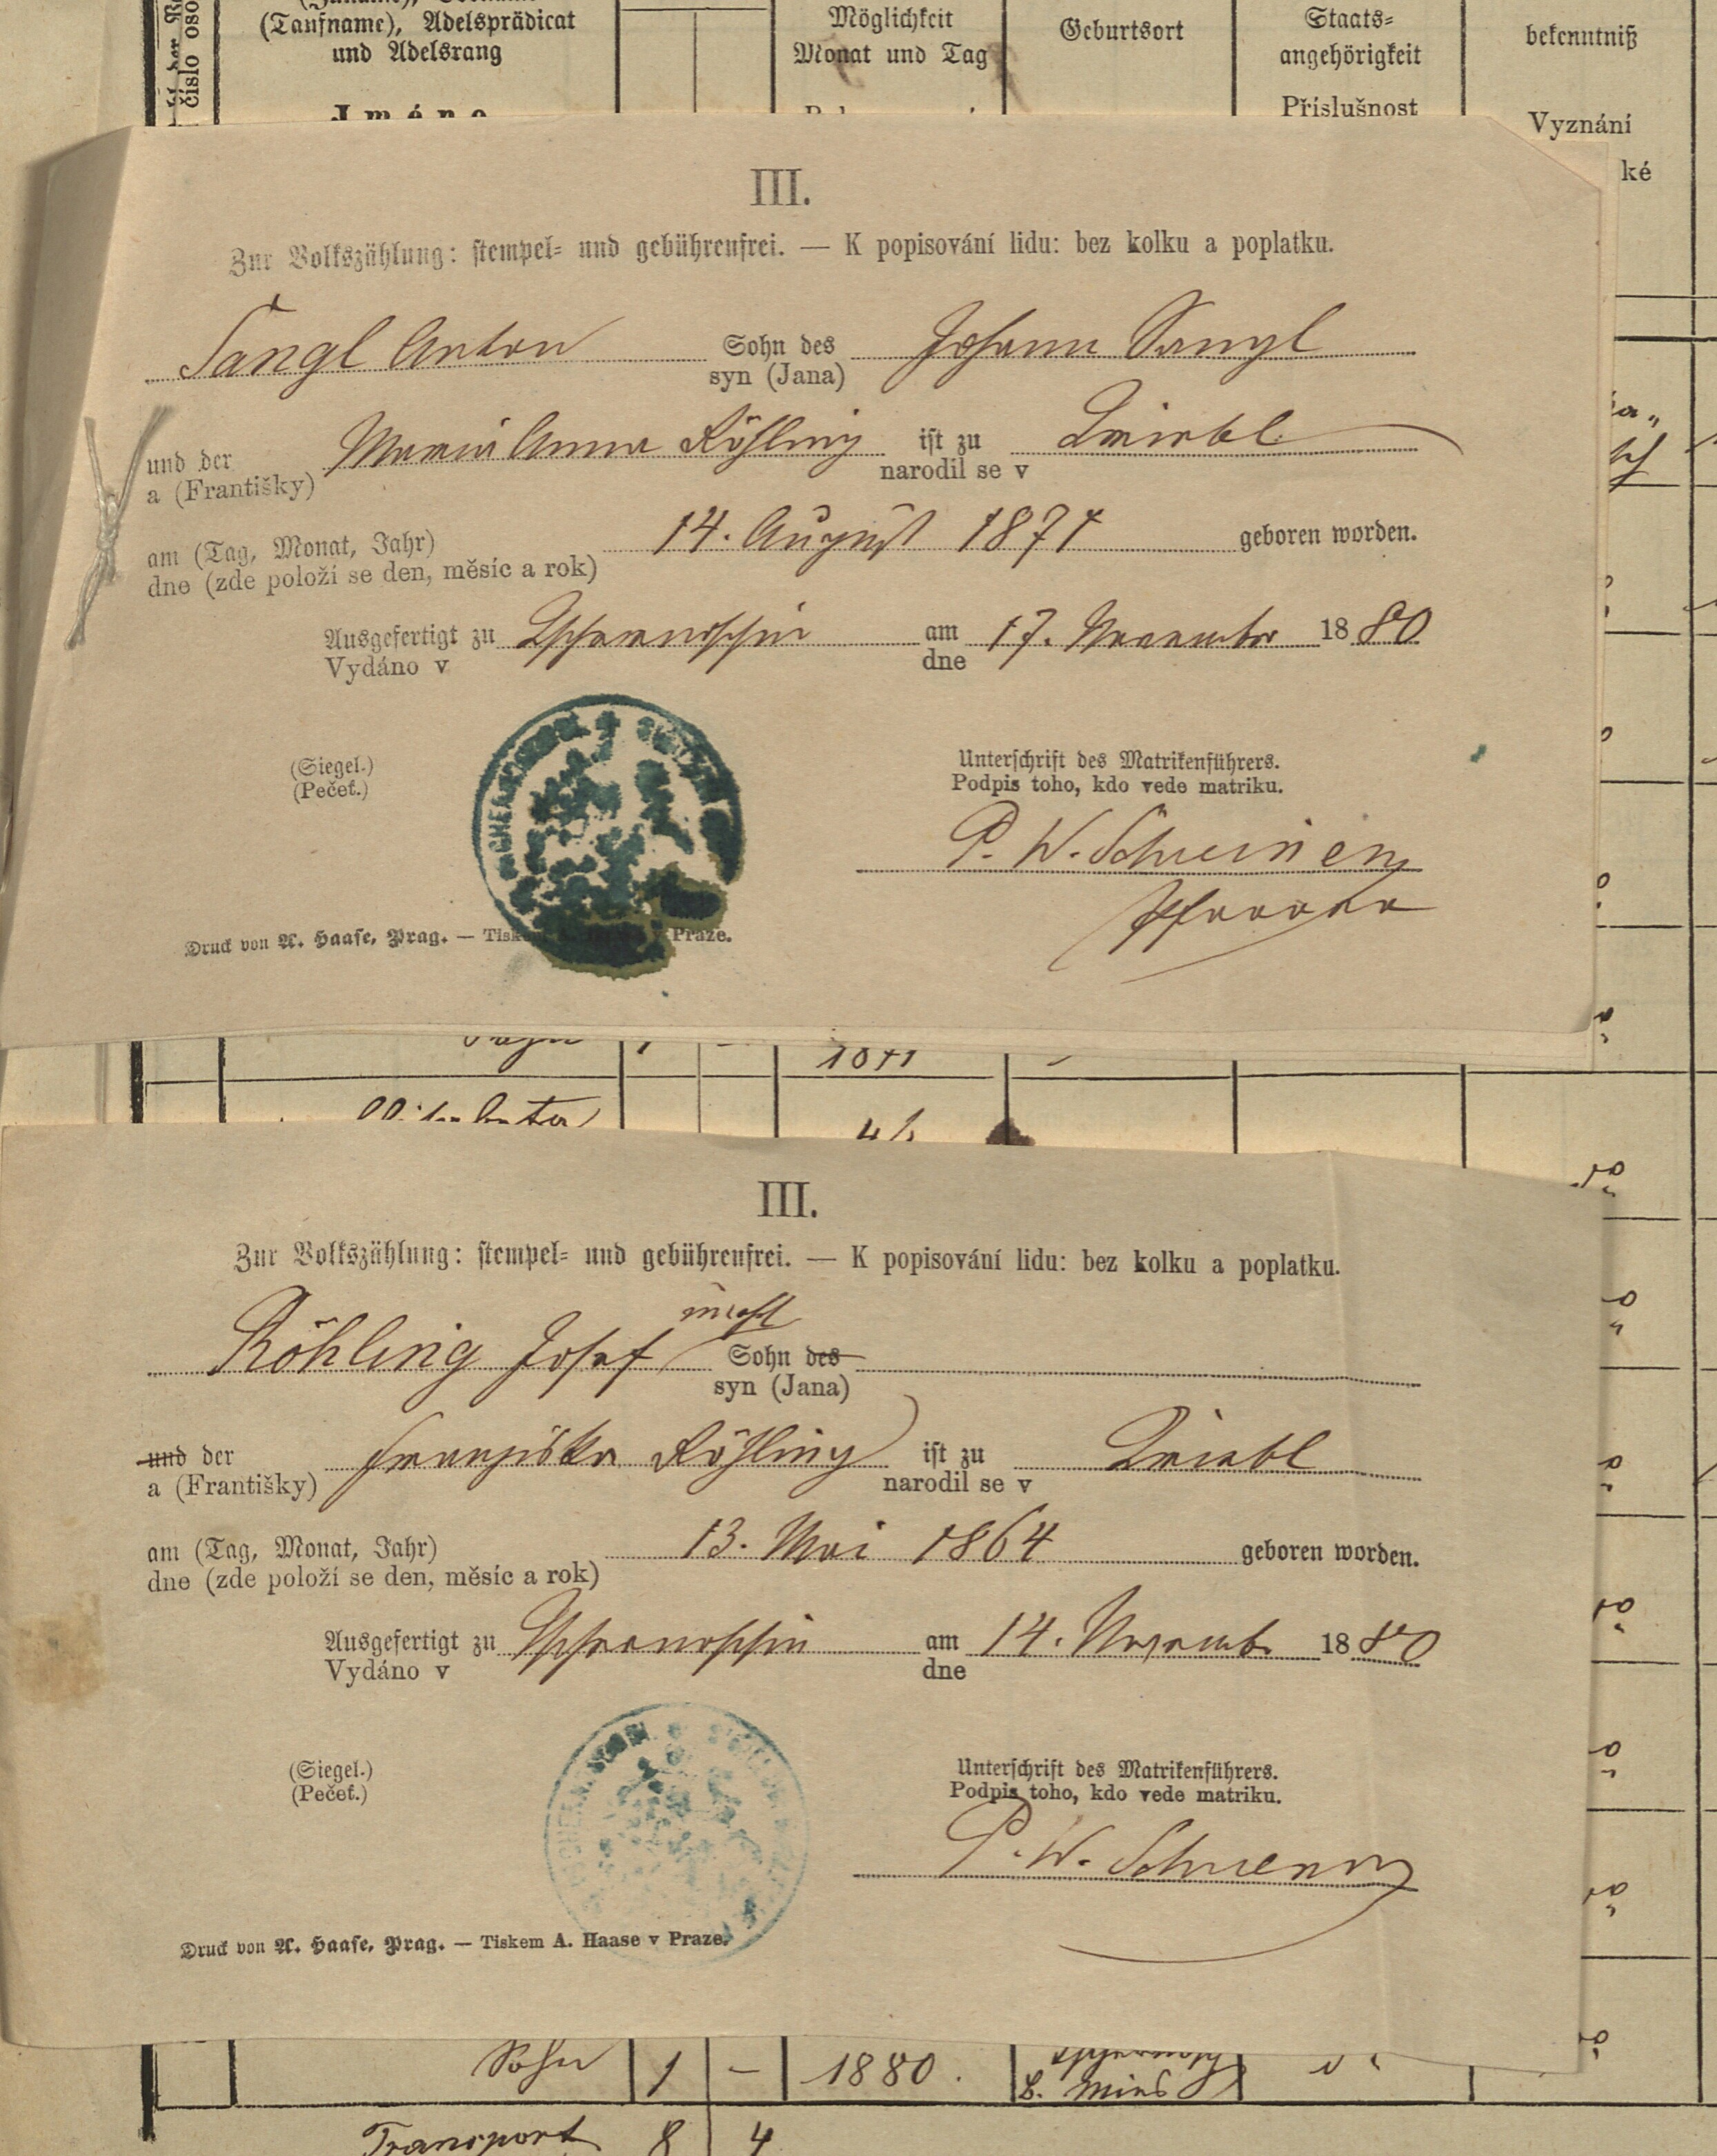 (Taufname), Adelsprädicat
und Adelsrang
Jméno
číslo
Möglichkeit
Monat und Tag
Geburtsort
Staats=
angehörigkeit
Příslušnost
bekenntniß
Vyznání
ké
III.
Zur Volkszählung: stempel= und gebührenfrei. — K popisování lidu: bez kolku a poplatku.
Sangl Anton Sohn des Johann Sangl
syn (Jana)
und der Maria Anna Röhling ist zu
a (Františky) narodil se v
am (Tag, Monat, Jahr) 14. August 1871 geboren worden.
dne (zde položí se den, měsíc a rok)
Ausgefertigt zu Tschernoschin am 17. November 1880
Vydáno v dne
(Siegel.) Unterschrift des Matrikenführers.
(Pečeť.) Podpis toho, kdo vede matriku.
P. W.
Pfarrer
Druck von A. Haase, Prag. — Tiskem v Praze.
Sohn 1 - 1871
III.
Zur Volkszählung: stempel= und gebührenfrei. — K popisování lidu: bez kolku a poplatku.
unehl
Röhling Josef Sohn des
syn (Jana)
und der Franziska Röhling ist zu
a (Františky) narodil se v
am (Tag, Monat, Jahr) 13. Mai 1864 geboren worden.
dne (zde položí se den, měsíc a rok)
Ausgefertigt zu Tschernoschin am 14. November 1880
Vydáno v dne
(Siegel.) Unterschrift des Matrikenführers.
(Pečeť.) Podpis toho, kdo vede matriku.
P. W.
Druck von A. Haase, Prag. — Tiskem A. Haase v Praze.
Sohn 1 - 1880.
B. Mies
Transport 8 4